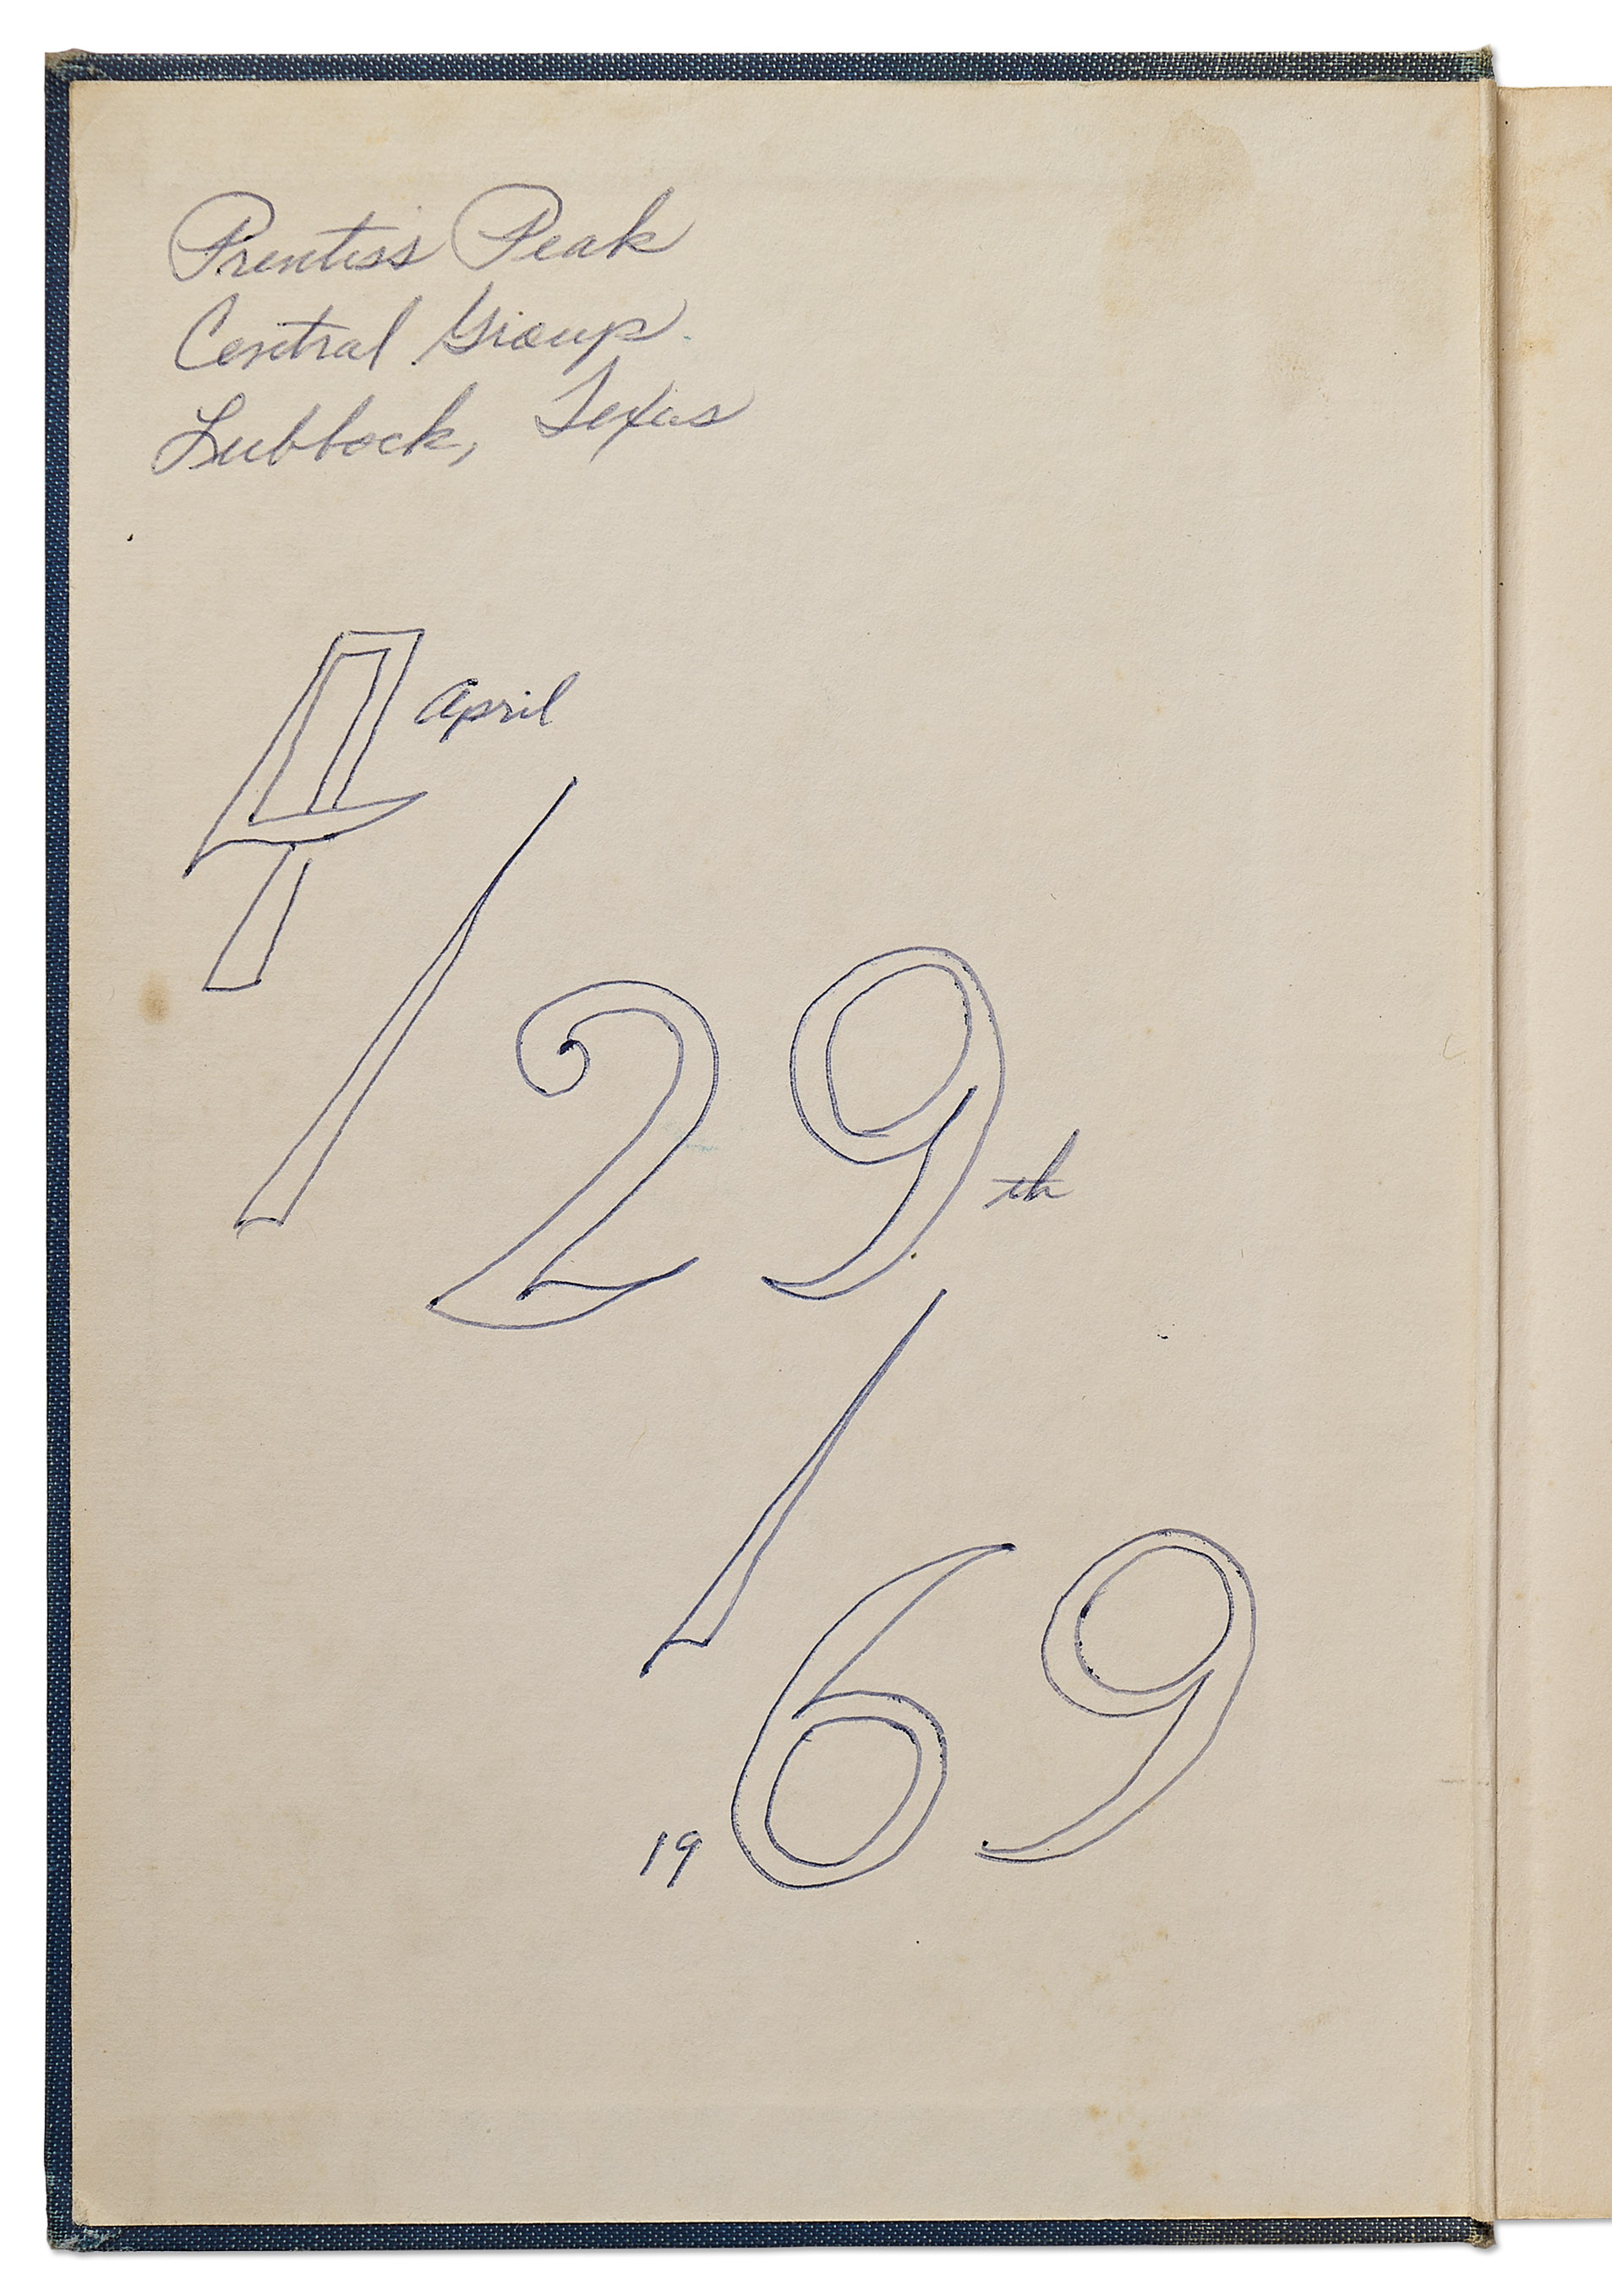 Prentiss Peak
Central Group
Lubbock, Texas
4 April
/
29th
/
1969